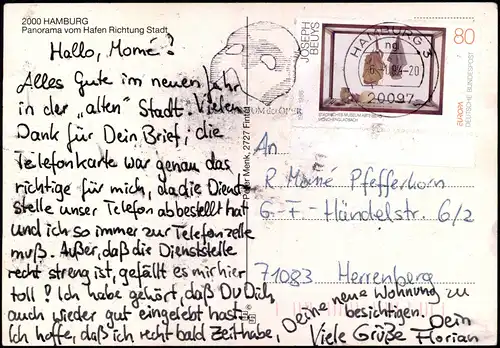 2000 HAMBURG
Panorama vom Hafen Richtung Stadt
Hallo, Momé!
Alles Gute im neuen Jahr
in der „alten" Stadt. Vielen
Dank für Dein Brief; die
Telefonkarte war genau das
richtige für mich, da die Dienst-
stelle unser Telefon abbestellt hat
und ich so immer zur Telefonzelle
muß. Außer, daß die Dienststelle
recht streng ist, gefällt es mir hier
toll! Ich habe gehört, daß Du Dich
auch wieder gut eingelebt hast.
Ich hoffe, daß ich recht bald Zeit habe,
Deine neue Wohnung zu
besichtigen.
Viele Grüße Dein
Florian
Peter Menk, 2727 Fintel
JOSEPH
BEUYS
HAMBURG
20097
80
EUROPA
DEUTSCHE BUNDESPOST
STÄDTISCHES MUSEUM ABTEIBERG
MÖNCHENGLADBACH
An
R. Momé Pfefferkorn
G.-F.-Händelstr. 6/2
71083 Herrenberg